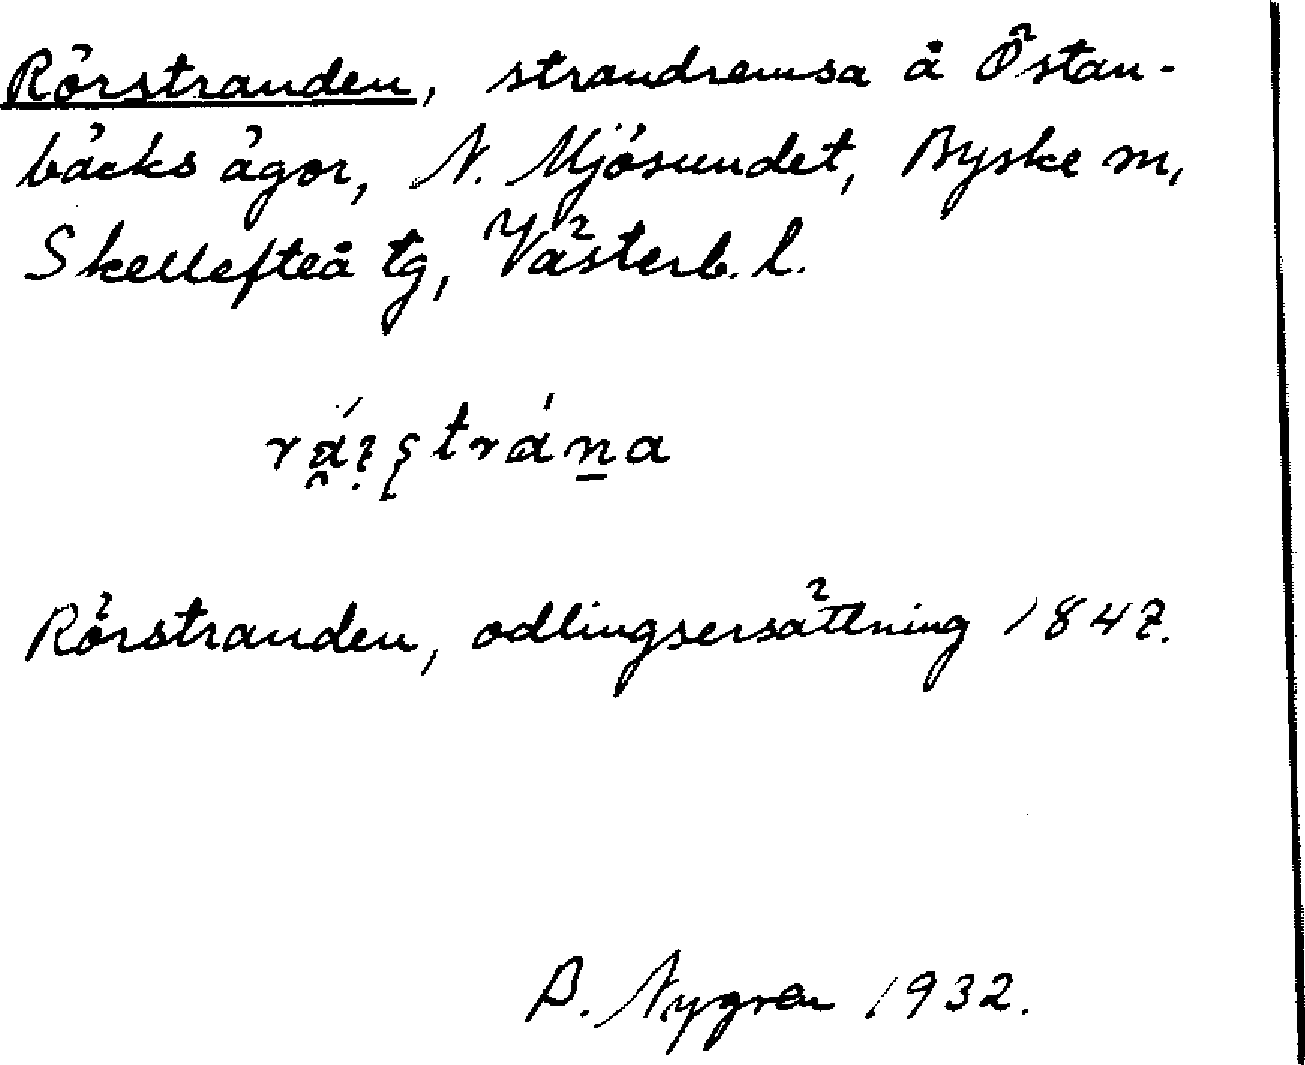 Rörstranden, strandremsa å Östan-
bäcks ägor, N. Mjösundet, Byske sn,
Skellefteå tg, Västerb. l.
Rörstranden, odlingsersättning 1847.
B. Nygren 1932.